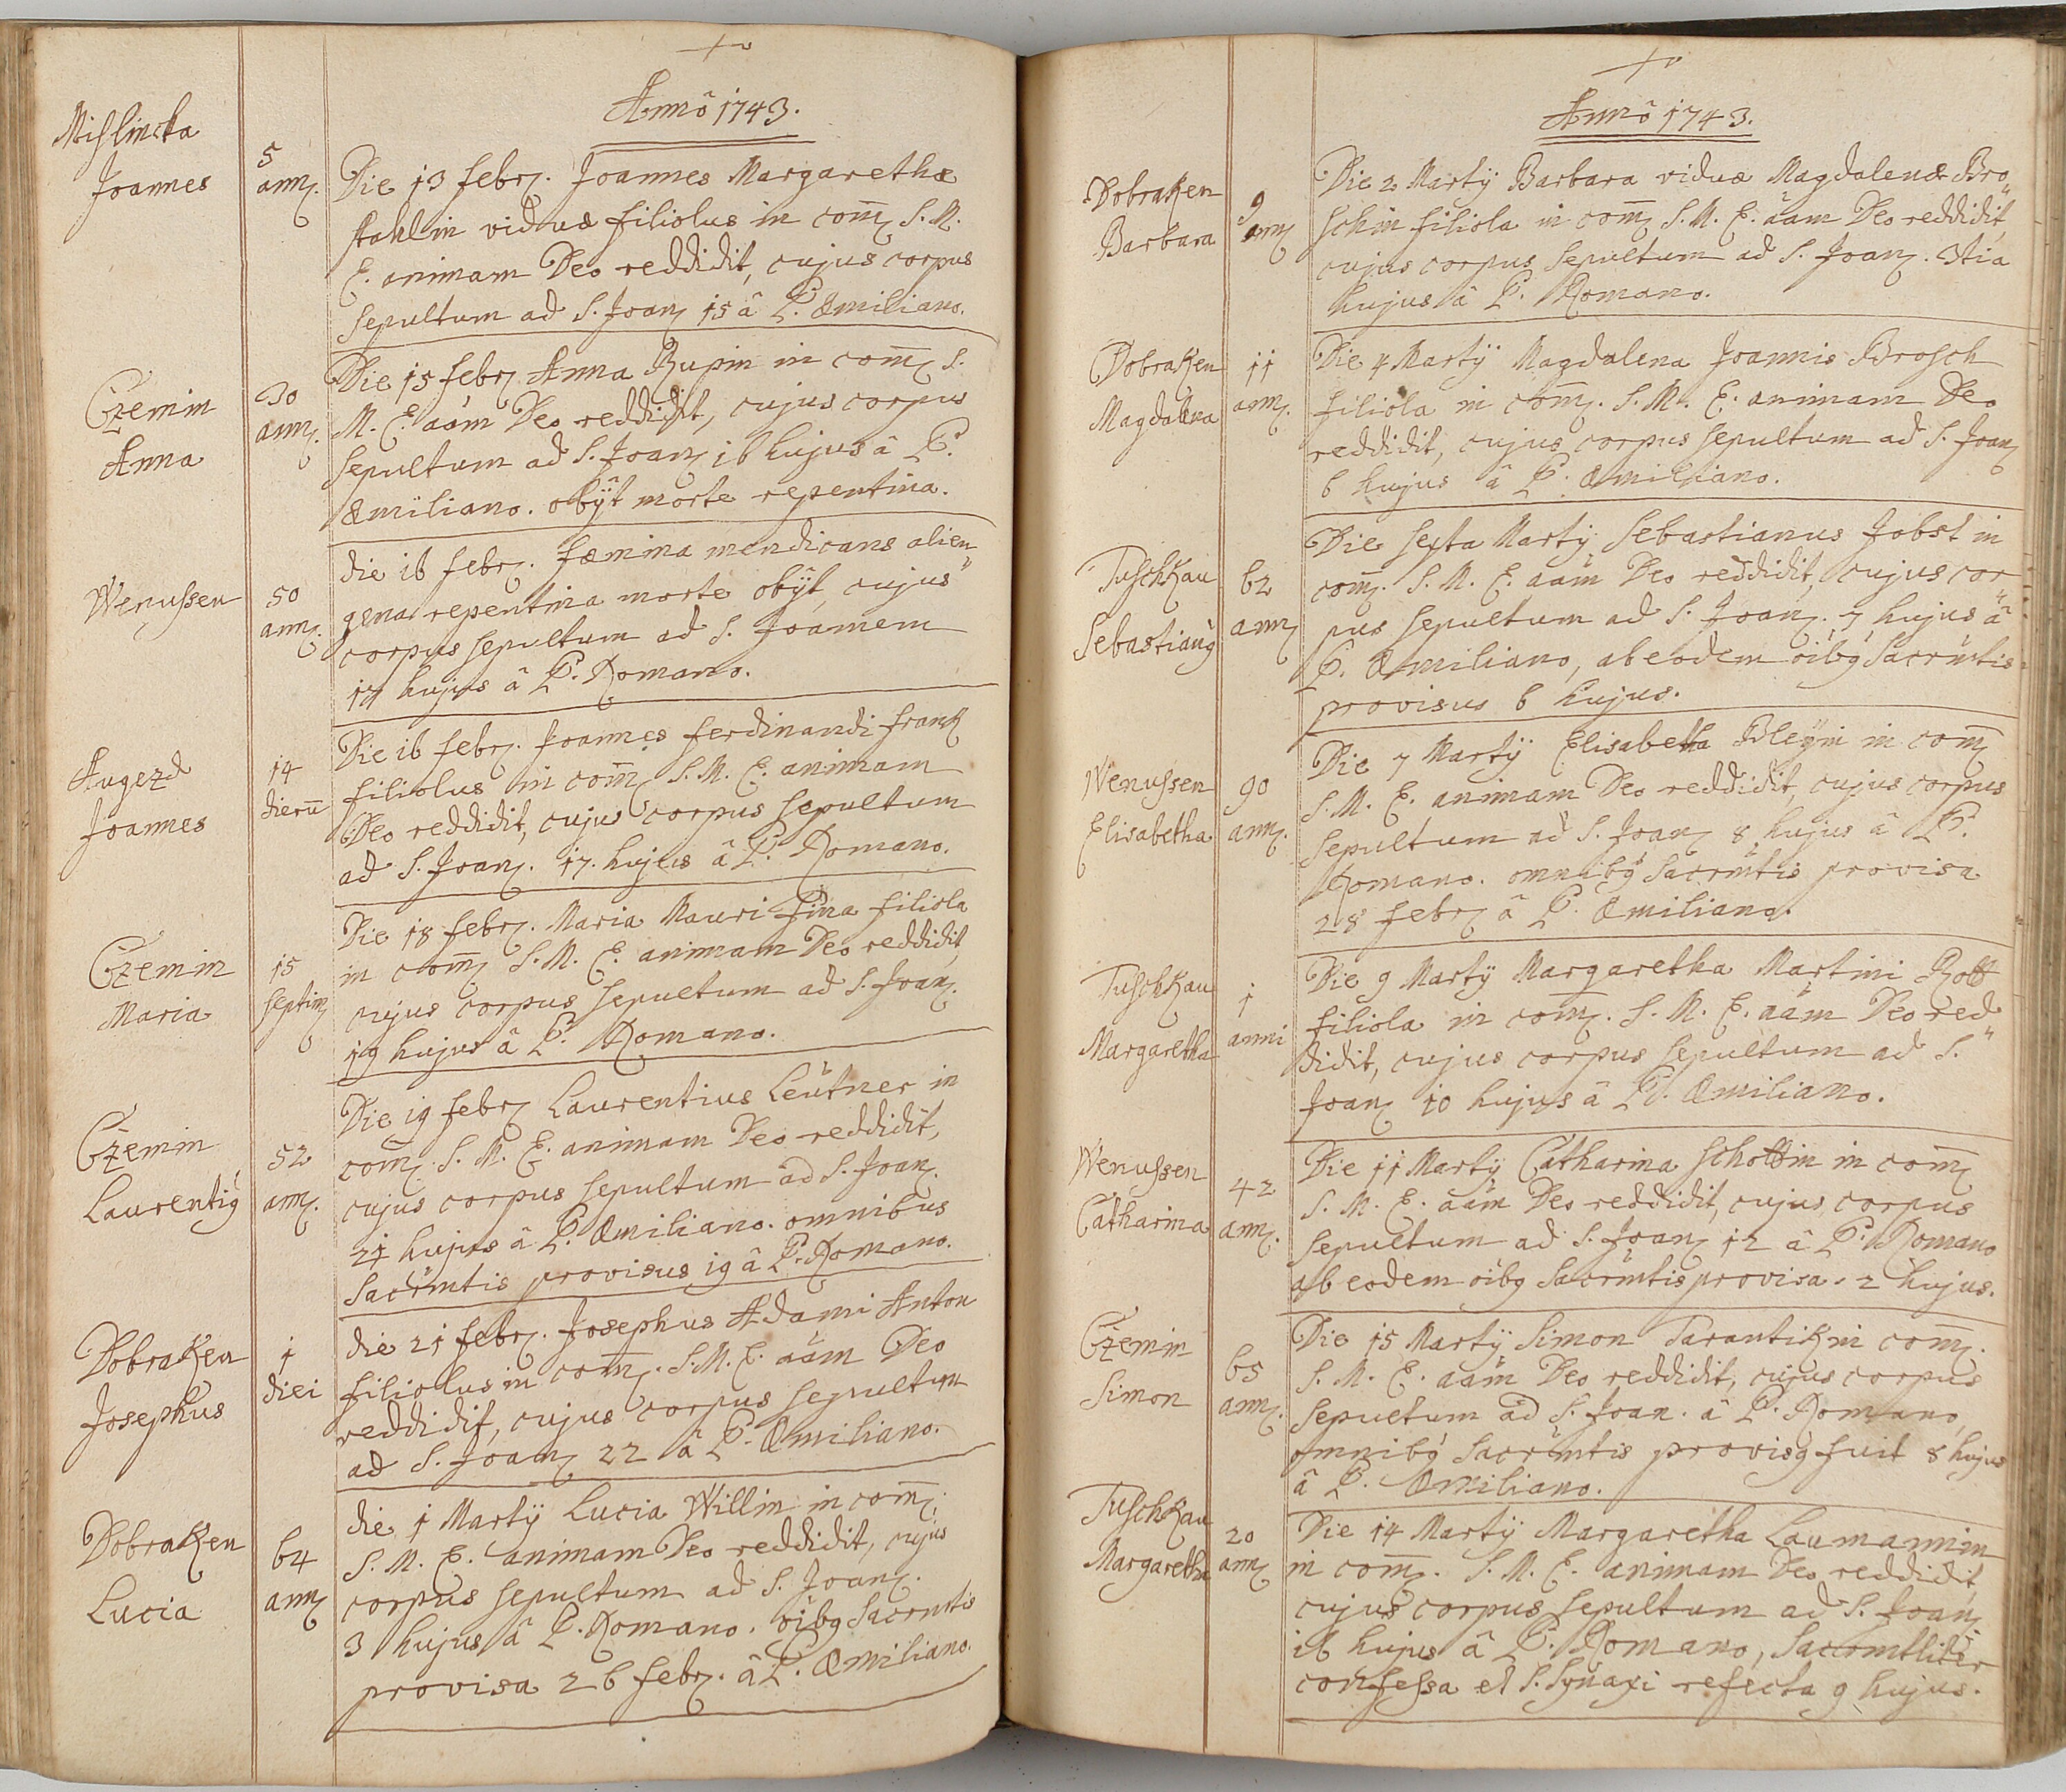 Anno 1743.
Mislincka
Joannes
5
ann.
Die 13 febr. Joannes Margarethæ
stahlin viduæ filiolus in com. S. M.
E. animam Deo reddidit, cujus corpus
sepultum ad S. Joan. 15 â P. Æmiliano.
Czemin
Anna
30
ann.
Die 15 febr. Anna Rupin in com. S.
M. E. aam Deo reddidit, cujus corpus
sepultum ad S. Joan. 16 hujus â P.
Æmiliano. obÿt morte repentina.
Wenussen
50
ann.
die 16 febr. fæmina mendicans alien„
gena repentina morte obÿt, cujus
corpus sepultum ad S. Joannem
17 hujus â P. Romano.
Augezd
Joannes
14
dierū
Die 16 febr. Joannes ferdinandi frank
filiolus in com. S. M. E. animam
Deo reddidit, cujus corpus sepultum
ad S. Joan. 17. hujus â P. Romano.
Czemin
Maria
15
septim.
Die 18 febr. Maria Mauri Pina filiola
in com. S. M. E. animam Deo reddidit,
cujus corpus sepultum ad S. Joan.
19 hujus â P. Romano.
Czemin
Laurentiꝰ
52
ann.
Die 19 febr. Laurentius Leütner in
com. S. M. E. animam Deo reddidit,
cujus corpus sepultum ad S. Joan.
21 hujus â P. Æmiliano. omnibus
Sacrmtis provisus 19 â P. Romano.
Dobraken
Josephus
1
diei
die 21 febr. Josephus Adami Anton
filiolus in com. S. M. E. aam Deo
reddidit, cujus corpus sepultum
ad S. Joan. 22 â P. Æmiliano.
Dobraken
Lucia
64
ann.
die 1 Martÿ Lucia Willin in com.
S. M. E. animam Deo reddidit, cujus
corpus sepultum ad S. Joan.
3 hujus â P. Romano. oibꝰ Sacrmtis
provisa 26 febr. â P. Æmiliano.
Anno 1743.
Dobraken
Barbara
9
ann.
Die 2 Martÿ Barbara viduæ Magdalenæ Bro„
schin filiola in com. S. M. E. aam Deo reddidit,
cujus corpus sepultum ad S. Joan. 3tia
hujus â P. Romano.
Dobraken
Magdalena
11
ann.
Die 4 Martÿ Magdalena Joannis Brosch
filiola in com. S. M. E. animam Deo
reddidit, cujus corpus sepultum ad S. Joan.
6 hujus â P. Æmiliano.
Tuschkau
Sebastianꝰ
62
ann.
Die sexta Martÿ Sebastianus Jobst in
com. S. M. E. aam Deo reddidit, cujus cor„
pus sepultum ad S. Joan. 7 hujus â
P. Æmiliano, ab eodem oibꝰ Sacrmtis
provisus 6 hujus.
Wenussen
Elisabetha
90
ann.
Die 7 Martÿ Elisabetha Bleÿin in com.
S. M. E. animam Deo reddidit, cujus corpus
sepultum ad S. Joan. 8 hujus â P.
Romano. omnibꝰ Sacrmtis provisa
28 febr. â P. Æmiliano.
Tuschkau
Margaretha
1
anni
Die 9 Martÿ Margaretha Martini Rott
filiola in com. S. M. E. aam Deo red„
didit, cujus corpus sepultum ad S.
Joan. 10 hujus â P. Æmiliano.
Wenussen
Catharina
42
ann.
Die 11 Martÿ Catharina Schottin in com.
S. M. E. aam Deo reddidit, cujus corpus
sepultum ad S. Joan. 12 â P. Romano
ab eodem oibꝰ Sacrmtis provisa 2 hujus.
Czemin
Simon
65
ann.
Die 15 Martÿ Simon Tarantik in com.
S. M. E. aam Deo reddidit, cujus corpus
sepultum ad S. Joan. â P. Romano,
omnibꝰ Sacrmtis provisꝰ fuit 8 hujus
â P. Æmiliano.
Tuschkau
Margaretha
20
ann.
Die 14 Martÿ Margaretha Laumannin
in com. S. M. E. animam Deo reddidit,
cujus corpus sepultum ad S. Joan.
16 hujus â P. Romano, Sacrmtliter
confessa et S. Synaxi refecta 9 hujus.